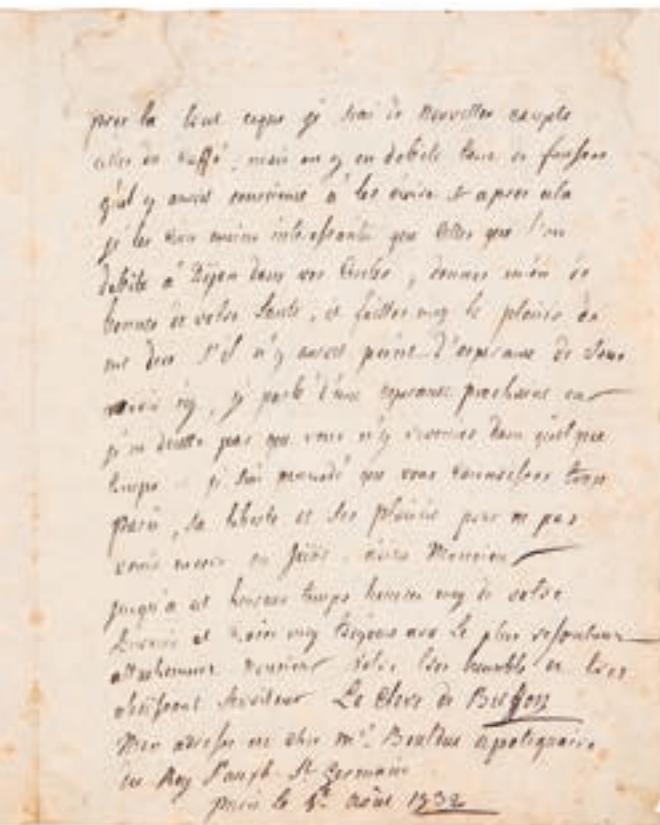 pour la          je     de nouvelles excepté
celles du caffé, mais on y en debite tant de fausses
qu'il y auroit conscience à les écrire et apres cela
je les crois moins interessantes que celles que l'on
debite à Dijon dans vos        , donnez m'en de
bonnes de votre santé, et faittes moy le plaisir de
me dire s'il n'y auroit point d'esperance de vous
revoir icy, je parle d'une esperance prochaine car
je ne doutte pas que vous n'y reveniez dans quelque
temps    je suis persuadé que vous connoissez trop
paris, sa liberté et ses plaisirs pour ne pas
venir          adieu Monsieur
jusqu'à cet heureux temps          moy de votre
         et croiez moy toujours avec le plus respectueux
attachement Monsieur Votre tres humble et tres
obeissant serviteur Le Clerc de Buffon
Mon adresse est chez Mr. Boulduc apotiquaire
du Roy    St. Germain
paris le      août 1732